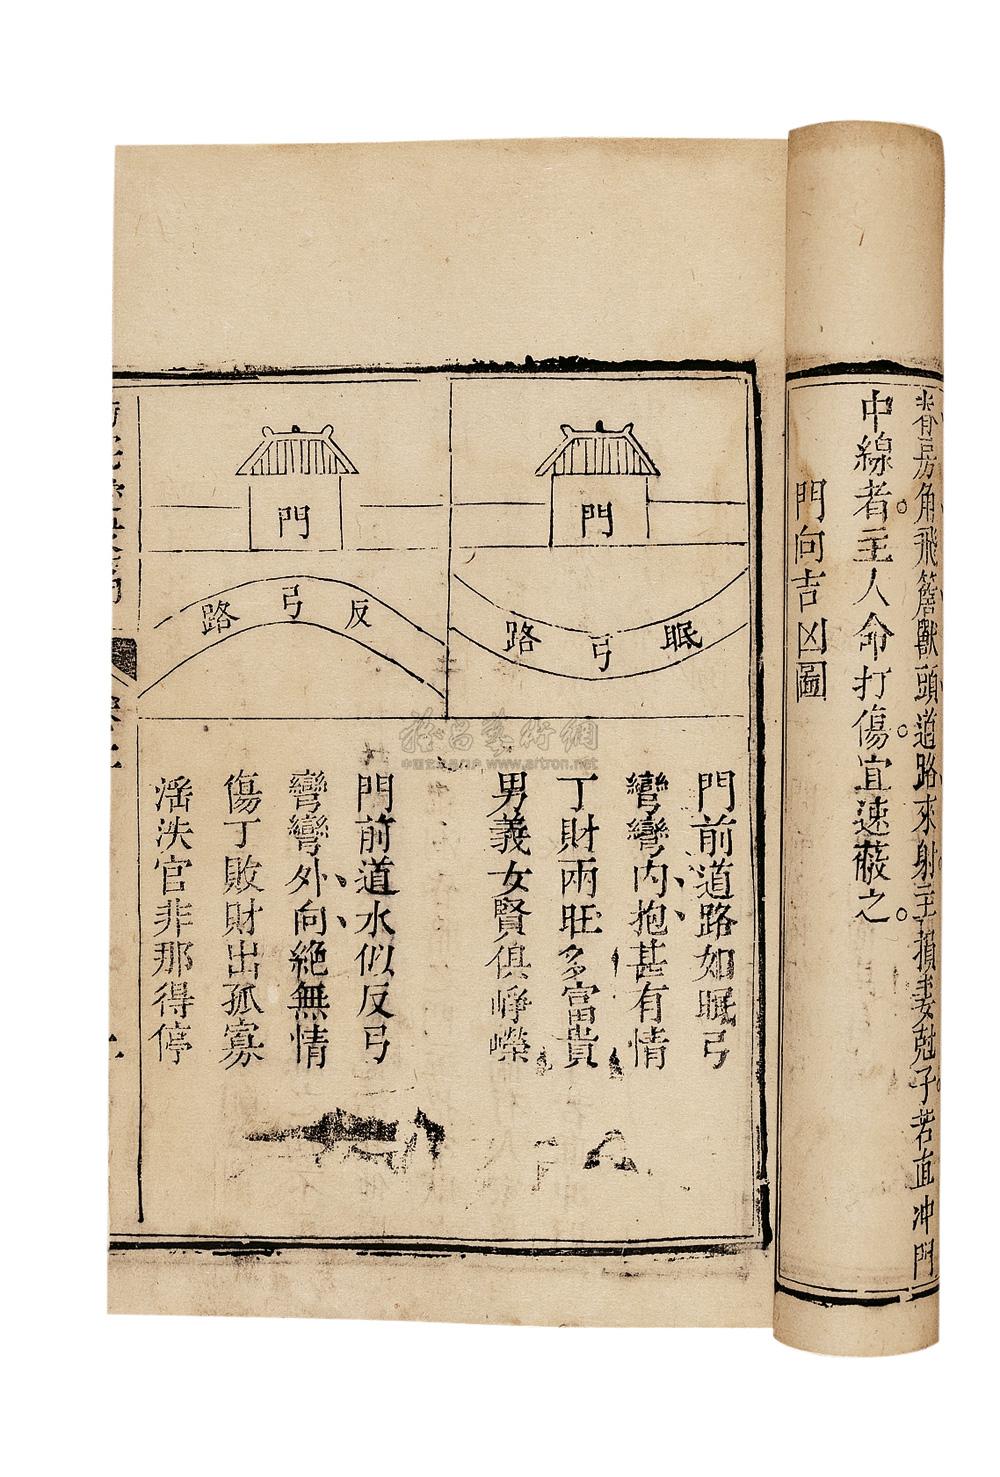 脊房角飛簷獸頭道路來射主損妻尅子若直冲門
中線者主人命打傷宜速蔽之
門向吉凶圖
門
眠弓路
門前道路如眠弓
彎彎內抱甚有情
丁財兩旺多富貴
男義女賢俱崢嶸
門
反弓路
門前道水似反弓
彎彎外向絕無情
傷丁敗財出孤寡
淫泆官非那得停
雅昌藝術網
www.artron.net